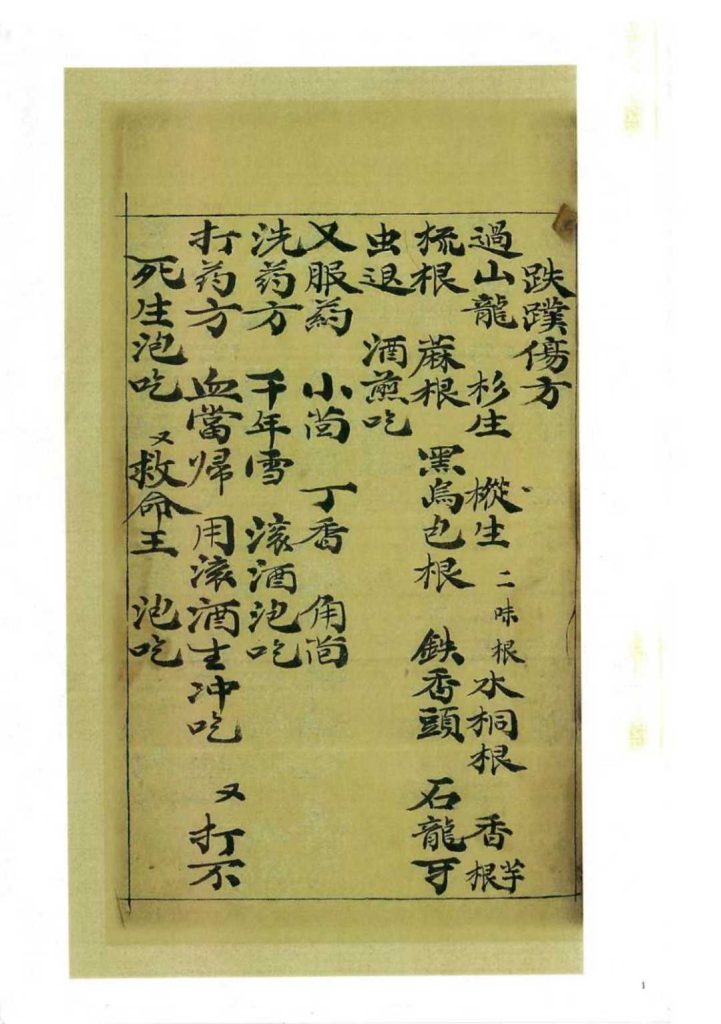 跌蹼傷方
過山龍 杉生 樅生 二味根 水桐根 香芋根
梳根 蔴根 黑烏包根 鉄香頭 石龍牙
虫退 酒煎吃
又服药 小茴 丁香 角茴
洗药方 千年雪 滚酒泡吃
打药方 血當帰 用滚酒生冲吃 又打不
死生泡吃 又救命王 泡吃
1